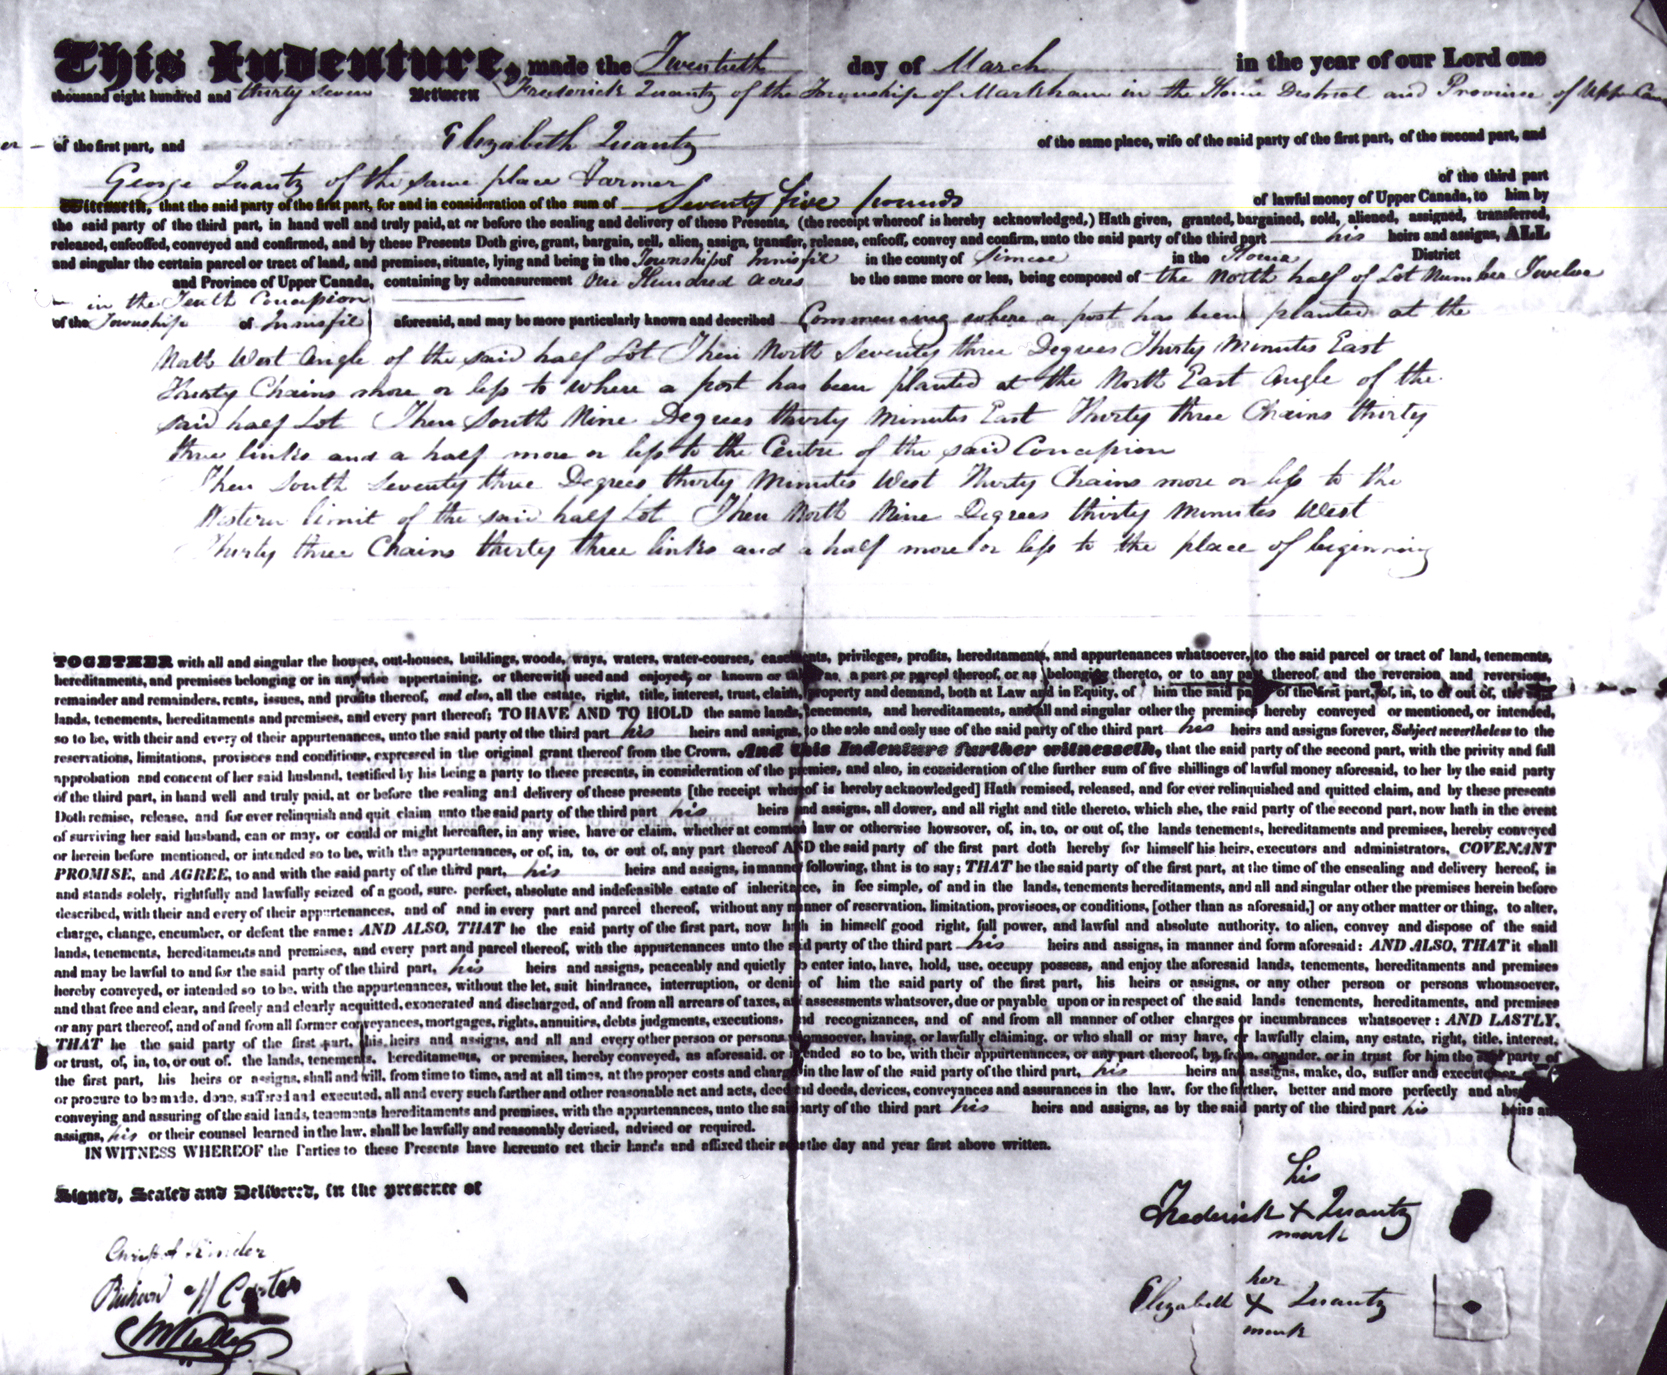 This Indenture, made the Twentieth day of March in the year of our Lord one
thousand eight hundred and thirty seven Between Frederick Quantz of the Township of Markham in the Home District and Province of Upper
of the first part, and Elizabeth Quantz of the same place, wife of the said party of the first part, of the second part, and
George Quantz of the same place Farmer of the third part
Witnesseth, that the said party of the first part, for and in consideration of the sum of Seventy five pounds of lawful money of Upper Canada, to him by
the said party of the third part, in hand well and truly paid, at or before the sealing and delivery of these Presents, (the receipt whereof is hereby acknowledged,) Hath given, granted, bargained, sold, aliened, assigned, transferred,
released, enfeoffed, conveyed and confirmed, and by these Presents Doth give, grant, bargain, sell, alien, assign, transfer, release, enfeoff, convey and confirm, unto the said party of the third part his heirs and assigns, ALL
and singular the certain parcel or tract of land, and premises, situate, lying and being in the Township of Innisfil in the county of Simcoe in the Home District
and Province of Upper Canada, containing by admeasurement One Hundred acres be the same more or less, being composed of the North half of Lot Number Twelve
in the Tenth Concession
of the Township of Innisfil aforesaid, and may be more particularly known and described Commencing where a post has been planted at the
North West Angle of the said half Lot Then North Seventy three Degrees Thirty Minutes East
Thirty Chains more or less to where a post has been planted at the North East Angle of the
said half Lot Then South Nine Degrees thirty Minutes East Thirty three Chains thirty
three links and a half more or less to the Centre of the said Concession
Then South Seventy three Degrees thirty Minutes West Thirty Chains more or less to the
Western limit of the said half Lot Then North Nine Degrees thirty Minutes West
Thirty three Chains thirty three links and a half more or less to the place of beginning
TOGETHER with all and singular the houses, out-houses, buildings, woods, ways, waters, water-courses, easements, privileges, profits, hereditaments, and appurtenances whatsoever, to the said parcel or tract of land, tenements,
hereditaments, and premises belonging or in any wise appertaining, or therewith used and enjoyed, or known or as, a part or parcel thereof, or as belonging thereto, or to any part thereof and the reversion and reversions,
remainder and remainders, rents, issues, and profits thereof, and also, all the estate, right, title, interest, trust, claim, property and demand, both at Law and in Equity, of him the said of the first part, of, in, to or out of, the
lands, tenements, hereditaments and premises, and every part thereof; TO HAVE AND TO HOLD the same lands, tenements, and hereditaments, and all and singular other the premises hereby conveyed or mentioned, or intended,
so to be, with their and every of their appurtenances, unto the said party of the third part his heirs and assigns, to the sole and only use of the said party of the third part his heirs and assigns forever, Subject nevertheless to the
reservations, limitations, provisoes and conditions, expressed in the original grant thereof from the Crown. And this Indenture further witnesseth, that the said party of the second part, with the privity and full
approbation and concent of her said husband, testified by his being a party to these presents, in consideration of the premies, and also, in consideration of the further sum of five shillings of lawful money aforesaid, to her by the said party
of the third part, in hand well and truly paid, at or before the sealing and delivery of these presents [the receipt whereof is hereby acknowledged] Hath remised, released, and for ever relinquished and quitted claim, and by these presents
Doth remise, release, and for ever relinquish and quit claim unto the said party of the third part his heirs and assigns, all dower, and all right and title thereto, which she, the said party of the second part, now hath in the event
of surviving her said husband, can or may, or could or might hereafter, in any wise, have or claim, whether at common law or otherwise howsover, of, in, to, or out of, the lands tenements, hereditaments and premises, hereby conveyed
or herein before mentioned, or intended so to be, with the appurtenances, or of, in, to, or out of, any part thereof AND the said party of the first part doth hereby for himself his heirs, executors and administrators, COVENANT
PROMISE, and AGREE, to and with the said party of the third part, his heirs and assigns, in manner following, that is to say; THAT he the said party of the first part, at the time of the ensealing and delivery hereof, is
and stands solely, rightfully and lawfully seized of a good, sure, perfect, absolute and indefeasible estate of inheritance, in fee simple, of and in the lands, tenements hereditaments, and all and singular other the premises herein before
described, with their and every of their appurtenances, and of and in every part and parcel thereof, without any manner of reservation, limitation, provisoes, or conditions, [other than as aforesaid,] or any other matter or thing, to alter,
charge, change, encumber, or defeat the same: AND ALSO, THAT he the said party of the first part, now hath in himself good right, full power, and lawful and absolute authority, to alien, convey and dispose of the said
lands, tenements, hereditaments and premises, and every part and parcel thereof, with the appurtenances unto the said party of the third part his heirs and assigns, in manner and form aforesaid: AND ALSO, THAT it shall
and may be lawful to and for the said party of the third part, his heirs and assigns, peaceably and quietly to enter into, have, hold, use, occupy possess, and enjoy the aforesaid lands, tenements, hereditaments and premises
hereby conveyed, or intended so to be, with the appurtenances, without the let, suit hindrance, interruption, or denial of him the said party of the first part, his heirs or assigns, or any other person or persons whomsoever,
and that free and clear, and freely and clearly acquitted, exonerated and discharged, of and from all arrears of taxes, and assessments whatsover, due or payable upon or in respect of the said lands tenements, hereditaments, and premises
or any part thereof, and of and from all former conveyances, mortgages, rights, annuities, debts judgments, executions, and recognizances, and of and from all manner of other charges or incumbrances whatsoever: AND LASTLY,
THAT he the said party of the first part, his heirs and assigns, and all and every other person or persons whomsoever, having, or lawfully claiming, or who shall or may have, or lawfully claim, any estate, right, title, interest,
or trust, of, in, to, or out of, the lands, tenements, hereditaments, or premises, hereby conveyed, as aforesaid, or intended so to be, with their appurtenances, or any part thereof, by, from, or under, or in trust for him the said party of
the first part, his heirs or assigns, shall and will, from time to time, and at all times, at the proper costs and charges in the law of the said party of the third part, his heirs and assigns, make, do, suffer and execute
or procure to be made, done, suffered and executed, all and every such further and other reasonable act and acts, deed and deeds, devices, conveyances and assurances in the law, for the further, better and more perfectly and
conveying and assuring of the said lands, tenements hereditaments and premises, with the appurtenances, unto the said party of the third part his heirs and assigns, as by the said party of the third part his heirs
assigns, his or their counsel learned in the law, shall be lawfully and reasonably devised, advised or required.
IN WITNESS WHEREOF the Parties to these Presents have hereunto set their hands and affixed their seals the day and year first above written.
Signed, Sealed and Delivered, in the presence of
his
Frederick X Quantz
mark
Richard Carter
her
Elizabeth X Quantz
mark